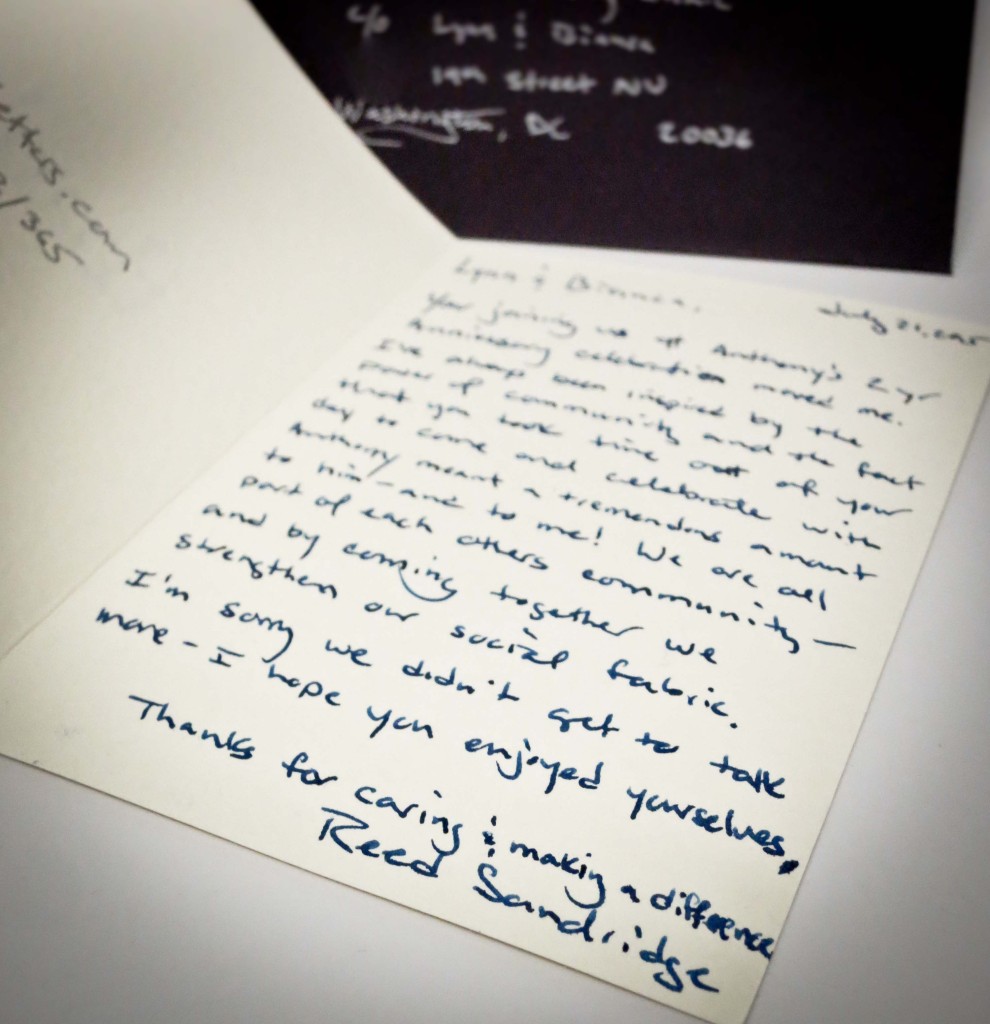 c/o Lynn & Bianca
19th Street NW
Washington, DC 20036
etters.com
/365
Lynn & Bianca,
July 21, 2015
Your joining us at Anthony's 2 yr
Anniversary celebration moved me.
I've always been inspired by the
power of community and the fact
that you took time out of your
day to come and celebrate with
Anthony meant a tremendous amount
to him - and to me! We are all
part of each others community -
and by coming together we
strengthen our social fabric.
I'm sorry we didn't get to talk
more - I hope you enjoyed yourselves.
Thanks for caring & making a difference
Reed Sandridge